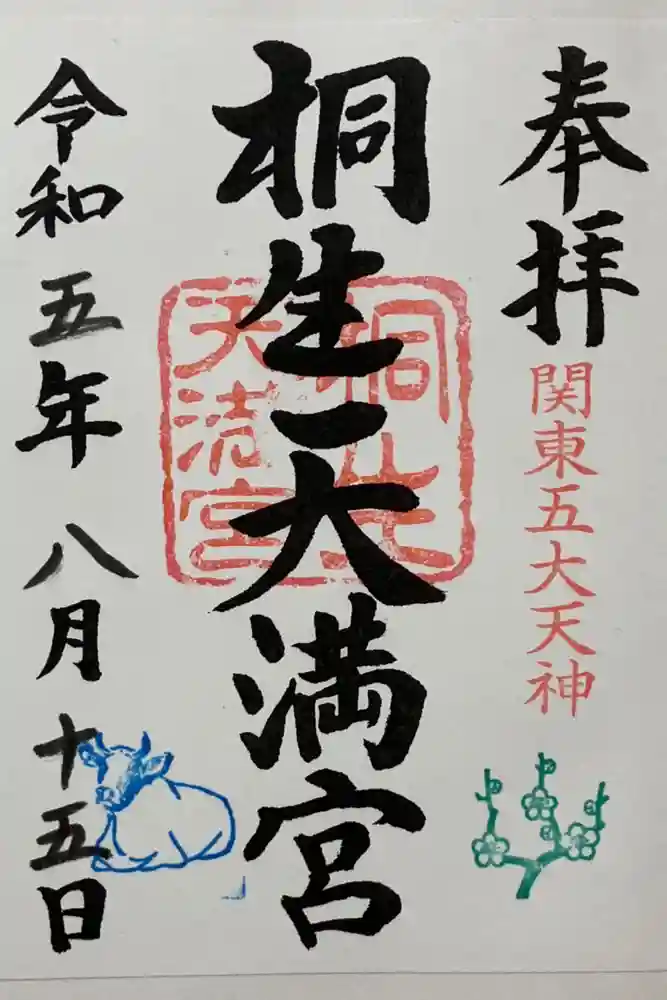 奉拝
関東五大天神
桐生天満宮
桐生
天満宮
令和五年八月十五日